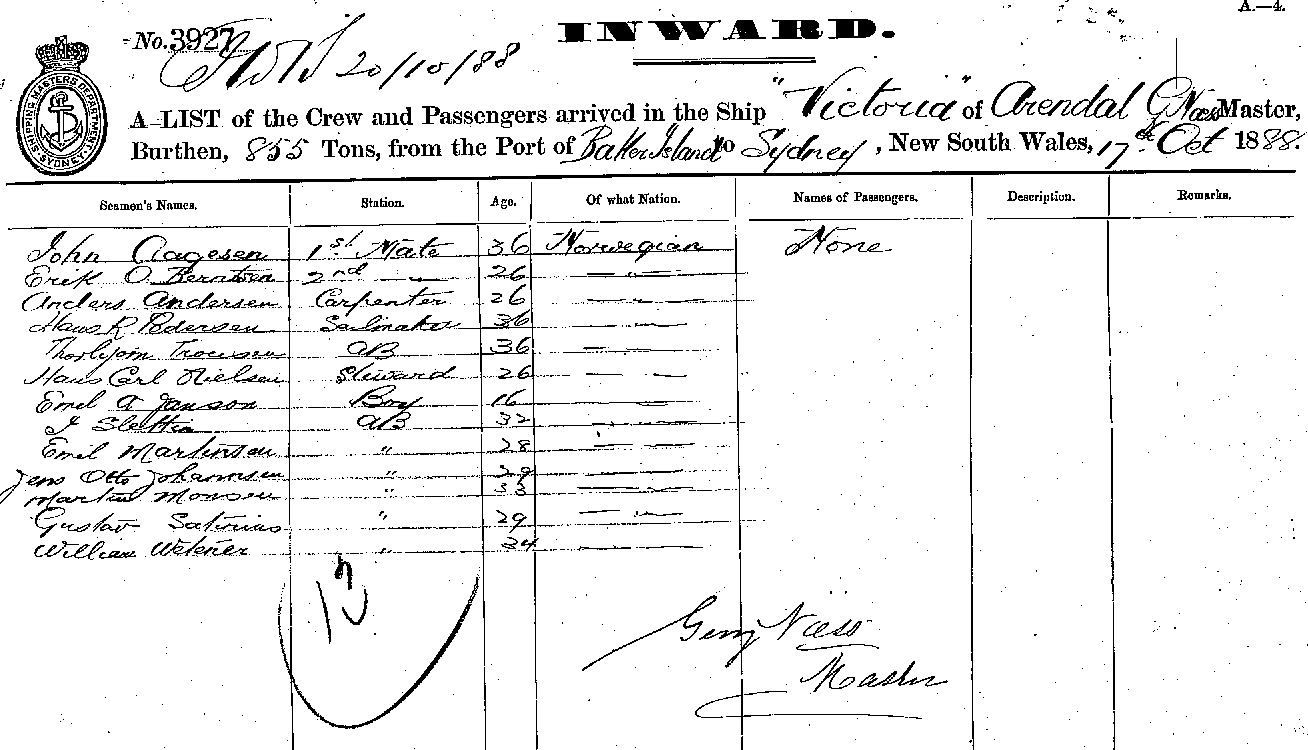 A.—4.
INWARD.
No. 3927
20/10/88
SHIPPING MASTERS DEPARTMENT SYDNEY
A LIST of the Crew and Passengers arrived in the Ship "Victoria" of Arendal G Næss Master,
Burthen, 855 Tons, from the Port of Baker Island to Sydney, New South Wales, 17th Oct 1888.
Seamen's Names. Station. Age. Of what Nation. Names of Passengers. Description. Remarks.
John Aagesen 1st Mate 36 Norwegian None
Erik O Berntsen 2nd — 26 — " —
Anders Andersen Carpenter 26 — " —
Hans R Pedersen Sailmaker 36 — " —
AB 36 — " —
Hans Carl Nielsen Steward 26 — " —
Emil A Janson Boy 16 — " —
J AB 32 — " —
Emil Martinsen " 28 — " —
Jens Otto Johannsen " — " —
Martin Monsen " 33 — " —
Gustav " 29 — " —
William " 34
13
Næss
Master